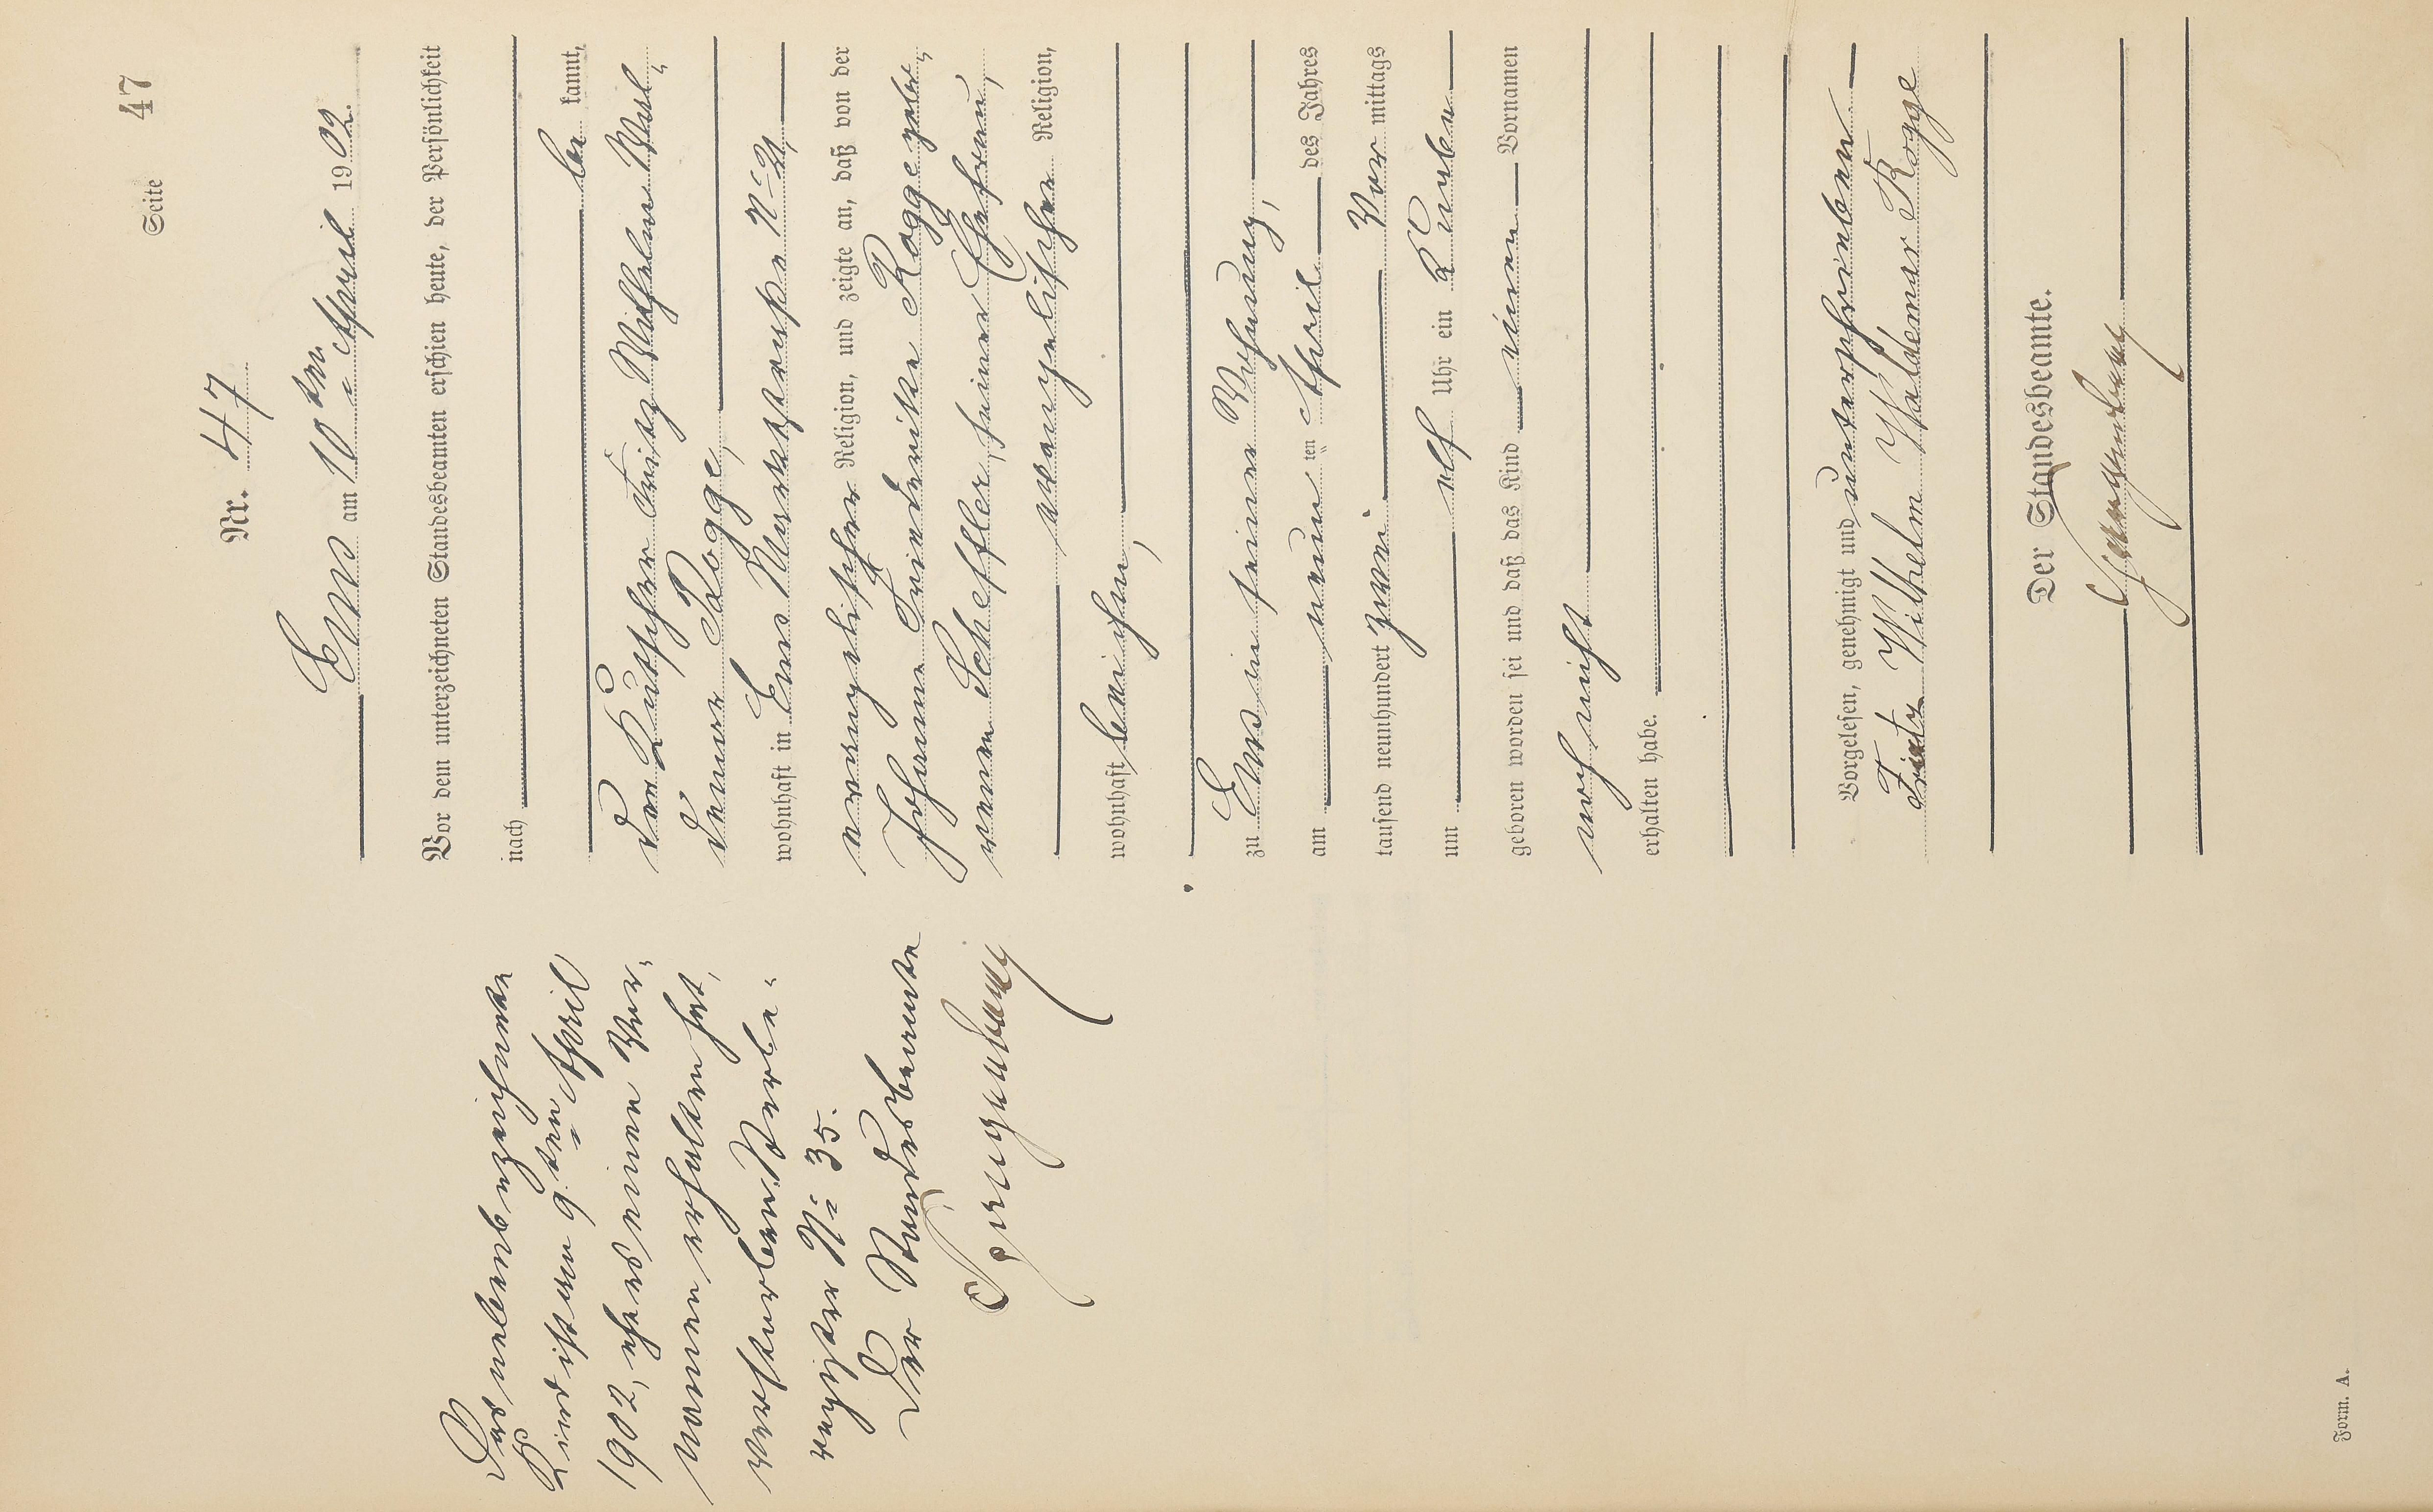 Seite 47
Nr. 47
Ems am 10ten April 1902.
Vor dem unterzeichneten Standesbeamten erschien heute, der Persönlichkeit
nach
be kannt,
der Kutscher Fritz Wilhelm Wal-
demar Rogge,
wohnhaft in Ems Marktstraße No 21
evangelischer Religion, und zeigte an, daß von der
Johanna Friederike Rogge gebo-
renen Scheffler, seiner Ehefrau,
evangelischer Religion,
wohnhaft bei ihm,
zu Ems in seiner Wohnung,
am neun ten April des Jahres
tausend neunhundert zwei Vor mittags
um elf Uhr ein Knabe
geboren worden sei und daß das Kind einen Vornamen
noch nicht
erhalten habe.
Vorgelesen, genehmigt und unterschrieben
Fritz Wilhelm Waldemar Rogge
Der Standesbeamte.
Das nebenbezeichnete
Kind ist am 9ten April
1902, ehe es einen Vor-
namen erhalten hat,
verstorben. Sterbe-
register No 35.
Der Standesbeamte
Form. A.